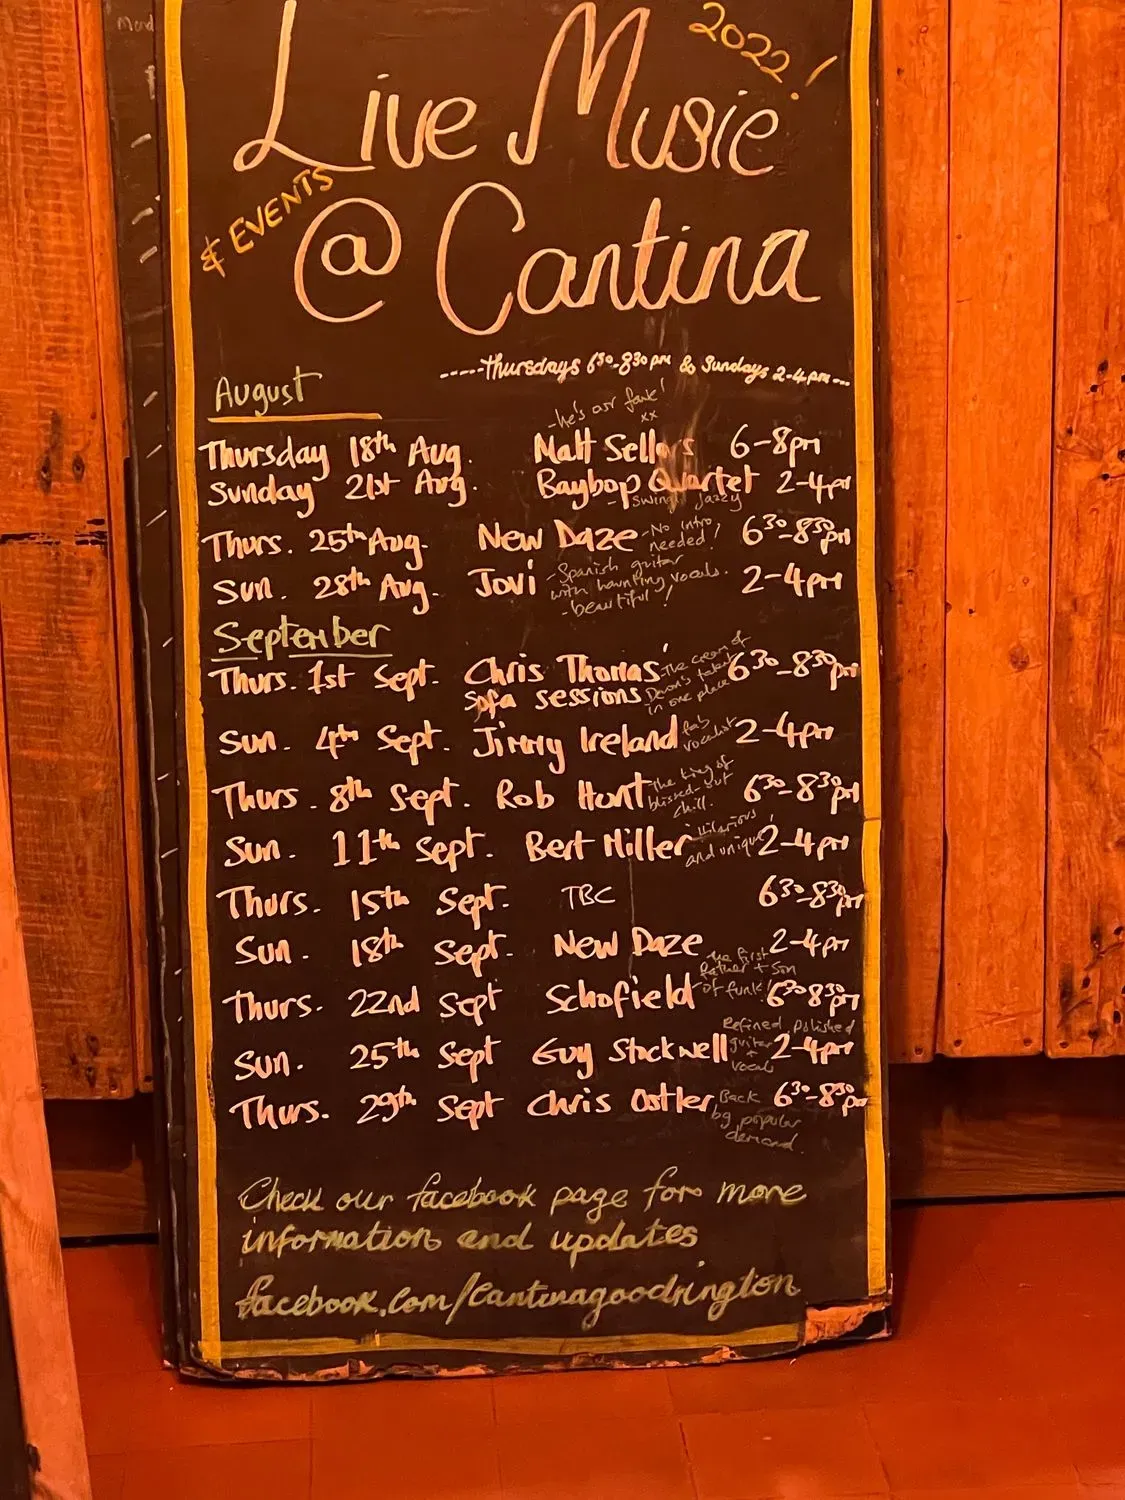 2022!
Live Music
& EVENTS
@ Cantina
-----Thursdays 6³⁰-8³⁰pm & Sundays 2-4pm---
August
-he's our fave! xx
Thursday 18th Aug. Matt Sellors 6-8pm
Sunday 21st Aug. Baybop Quartet 2-4pm
- swingin jazzy
Thurs. 25th Aug. New Daze -No intro needed! 6³⁰-8³⁰pm
Sun. 28th Aug. Jovi -Spanish guitar with haunting vocals. -beautiful! 2-4pm
September
Thurs. 1st Sept. Chris Thomas' Sofa sessions -The cream of Devon's talent in one place 6³⁰-8³⁰pm
Sun. 4th Sept. Jimmy Ireland fab vocalist 2-4pm
Thurs. 8th Sept. Rob Hunt The king of blissed-out chill. 6³⁰-8³⁰pm
Sun. 11th Sept. Bert Miller hilarious and unique! 2-4pm
Thurs. 15th Sept. TBC 6³⁰-8³⁰pm
Sun. 18th Sept. New Daze 2-4pm
Thurs. 22nd Sept Schofield The first father + son of funk! 6³⁰-8³⁰pm
Sun. 25th Sept Guy Stockwell Refined, polished guitar + vocals 2-4pm
Thurs. 29th Sept Chris Ostler Back by popular demand. 6³⁰-8³⁰pm
Check our facebook page for more
information and updates
facebook.com/cantinagoodrington